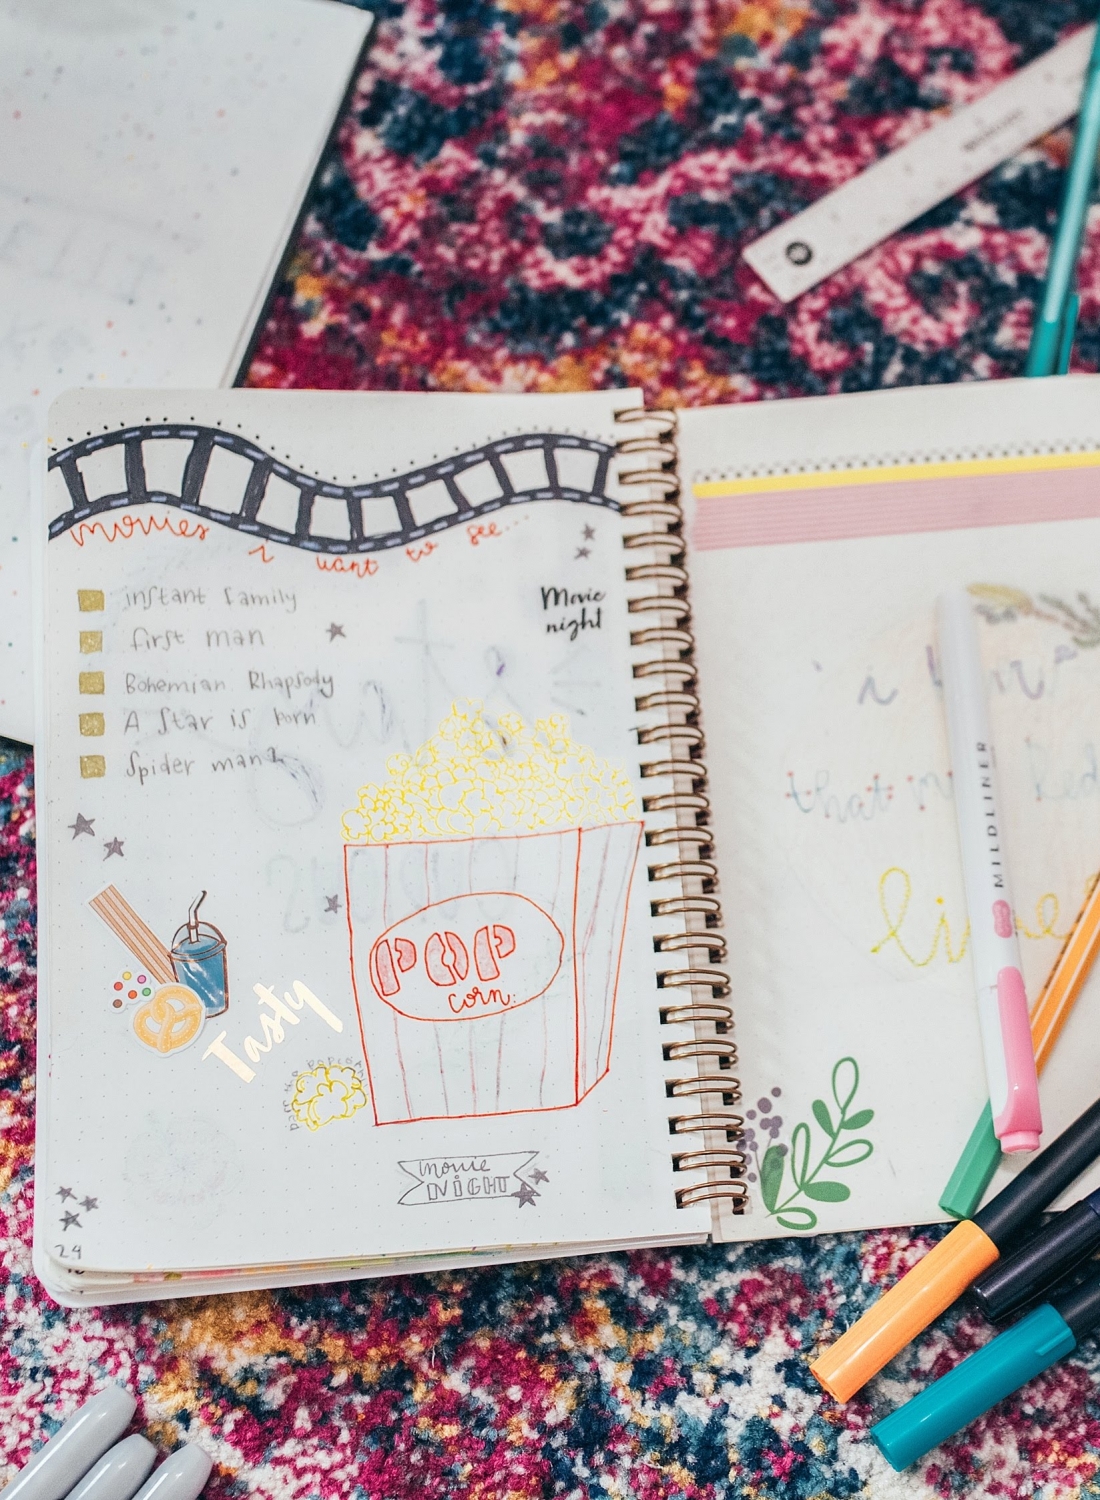 movies i want to see...
instant family
first man
Bohemian Rhapsody
A Star is born
Spider man?
Movie
night
POP
corn.
Tasty
movie
NIGHT
24
i
that
MILDLINER